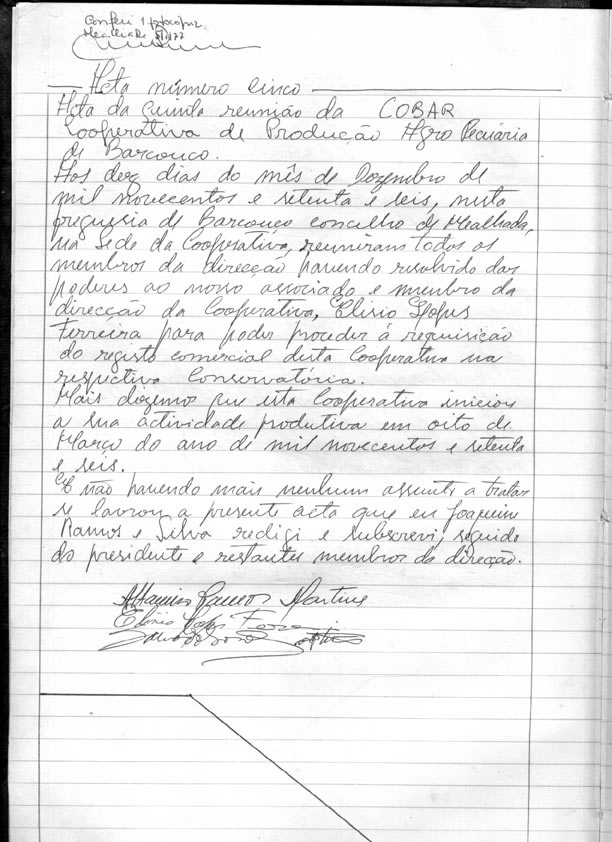 Conferi 1 fotocópia
Mealhada 5/1/77
Acta número cinco
Acta da quinta reunião da COBAR
Cooperativa de Produção Agro Pecuária
de Barcouço.
Aos dez dias do mês de Dezembro de
mil novecentos e setenta e seis, nesta
freguesia de Barcouço concelho de Mealhada,
na Sede da Cooperativa, reuniram todos os
membros da direcção havendo resolvido dar
poderes ao nosso associado e membro da
direcção da Cooperativa, Elisio Lopes
Ferreira para poder proceder á requisição
do registo comercial desta Cooperativa na
respectiva Conservatória.
Mais dizemos que esta Cooperativa iniciou
a sua actividade produtiva em oito de
Março do ano de mil novecentos e setenta
e seis.
E não havendo mais nenhum assunto a tratar
se lavrou a presente acta que eu Joaquim
Ramos e Silva redigi e subscrevi, seguido
do presidente e restantes membros da direcção.
Martins
Elisio Lopes Ferreira